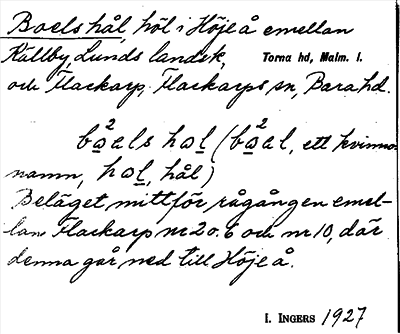 Boels hål, höl i Höje å emellan
Källby, Lunds landsk, Torna hd, Malm. l.
och Flackarp, Flackarps sn, Bara hd.
bo²els hol (bo²el, ett kvinno-
namn, hol, hål)
Beläget mittför rågången emel-
lan Flackarp nr 2 o. 6 och nr 10, där
denna går ned till Höje å.
I. INGERS 1927